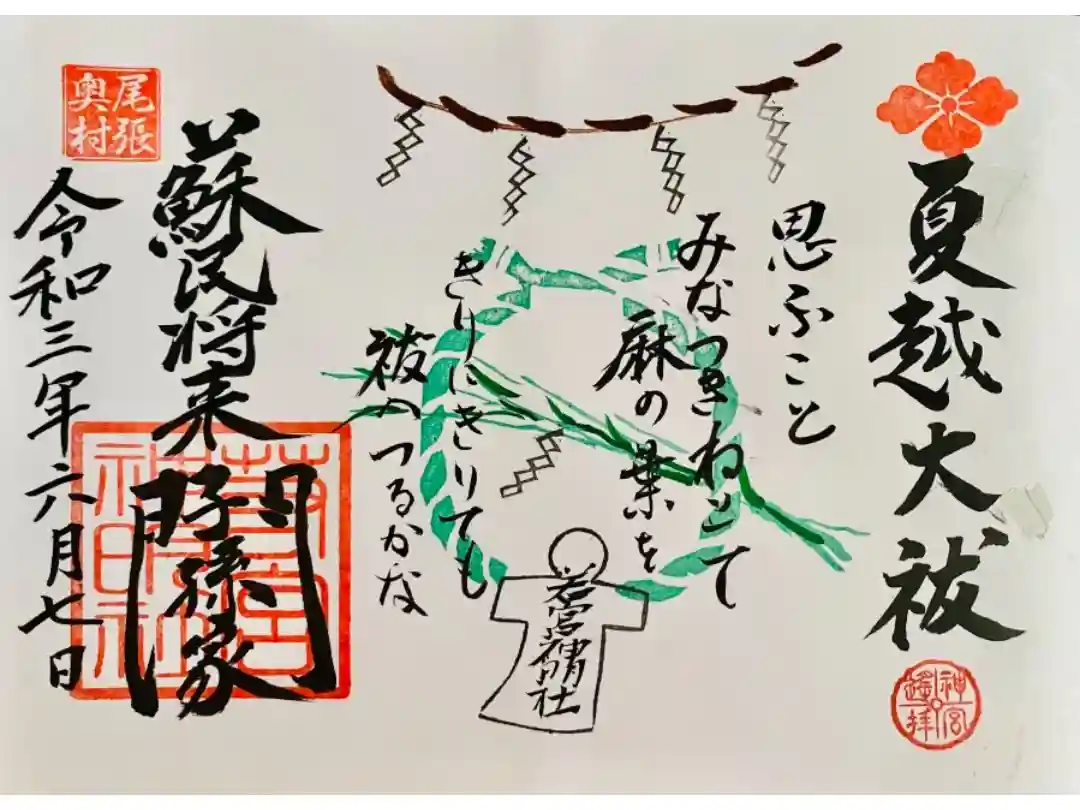 夏越大祓
神宮
遙拝
思ふこと
みなつきねとて
麻の葉を
きりにきりても
祓へつるかな
若宮神明社
蘇民将来子孫家門
尾張
奥村
令和三年六月七日